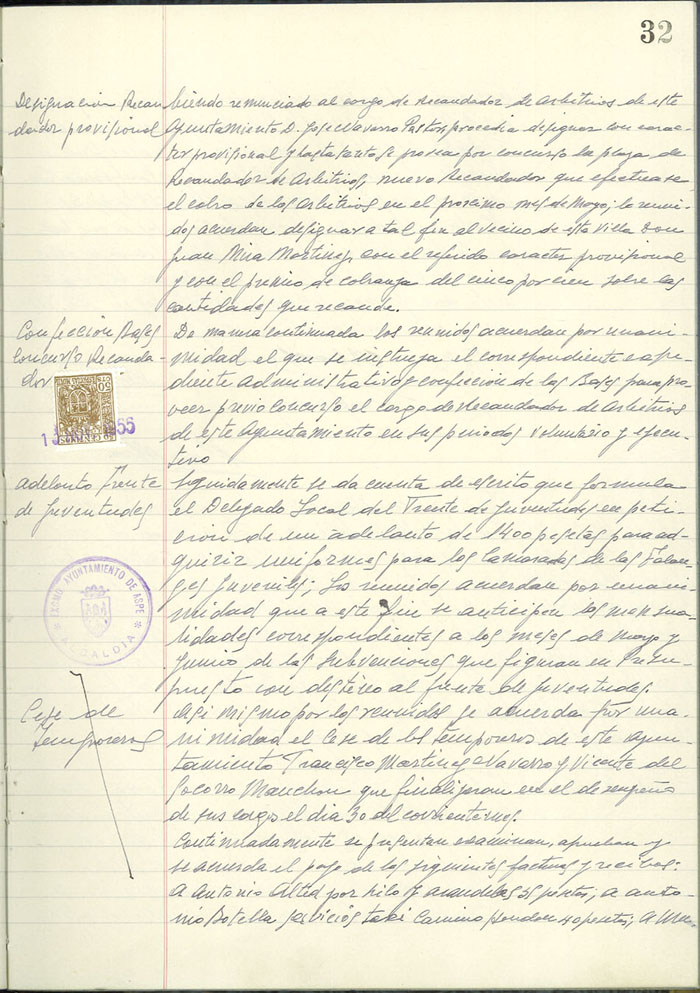 32
Designación Recau
dador provisional
biendo renunciado al cargo de Recaudador de Arbitrios de este
Ayuntamiento D. Jose Navarro Pastor, procedia designar con carac
ter provisional y hasta tanto se provea por concurso la plaza de
Recaudador de Arbitrios, nuevo Recaudador que efectuase
el cobro de los Arbitrios en el proximo mes de Mayo; los reuni
dos acuerdan designar a tal fin al vecino de esta villa Don
Juan Mira Martinez, con el referido caracter provisional
y con el premio de cobranza del cinco por cien sobre las
cantidades que recaude.
Confección Bases
Concurso Recauda-
dor
De manera continuada los reunidos acuerdan por unani-
midad el que se instruya el correspondiente expe-
diente administrativo y confección de las Bases para pro
veer previo concurso el cargo de Recaudador de Arbitrios
de este Ayuntamiento en sus periodos voluntario y ejecu-
tivo
50
55
adelanto Frente
de Juventudes
Seguidamente se da cuenta de escrito que formula
el Delegado Local del Frente de Juventudes en peti-
cion de un adelanto de 1400 pesetas para ad-
quirir uniformes para los camaradas de las Falan-
ges Juveniles; Los reunidos acuerdan por unani-
midad que a este fin se anticipen las mensua-
lidades correspondientes a los meses de Mayo y
Junio de las subvenciones que figuran en Presu-
puesto con destino al frente de Juventudes.
EXCMO AYUNTAMIENTO DE ASPE
ALCALDIA
Cese de
Temporeros
Asi mismo por los reunidos se acuerda por una-
nimidad el Cese de los temporeros de este Ayun-
tamiento Francisco Martinez Navarro y Vicente del
Socorro Manchon que finalizaran en el desempeño
de sus cargos el dia 30 del corriente mes.
Continuadamente se presentan examinan, aprueban y
se acuerda el pago de las siguientes facturas y recibos:
a Antonio Alted por hilo y arandelas 35 pesetas; a Anto-
nio Botella servicios taxi Camino Hondon 40 pesetas; a